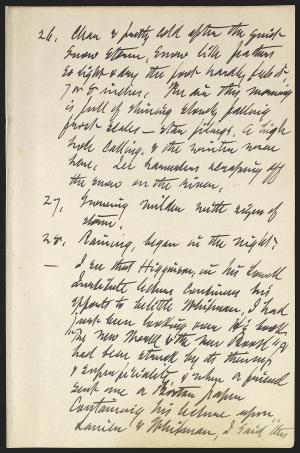 26. Clear & pretty cold after the quiet
snow storm, snow like feathers
so light & dry the foot hardly feels it,
7 or 8 inches. The air this morning
is full of shining slowly falling
frost scales — star filings. A high
hole calling, & the written
here. Ice harvesters scraping off
the snow on the river.
27. Growing milder with signs of
storm.
28. Raining, began in the night.
— I see that Higginson, in his Lowell
Institute lectures continues his
efforts to belittle Whitman, I had
just been looking over his book
"The new World & the new Book" &
had been struck by its thinness
& superficiality, & when a friend
sent me a Boston paper
containing his lecture upon
Lanier & Whitman, I said "this